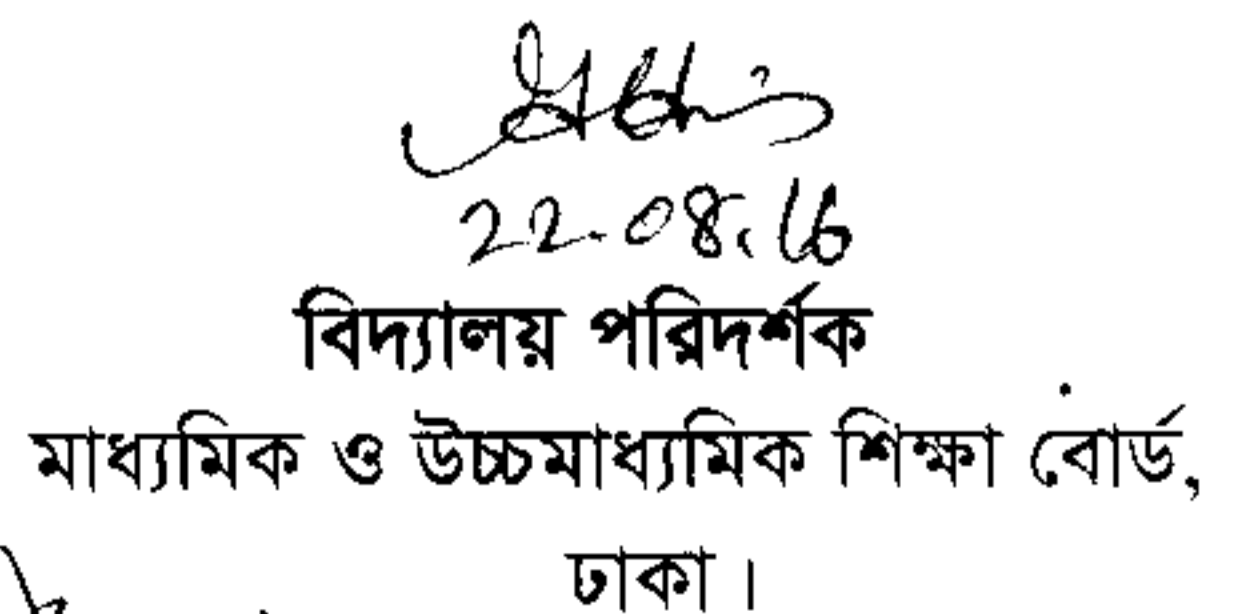 22.08.16
বিদ্যালয় পরিদর্শক
মাধ্যমিক ও উচ্চমাধ্যমিক শিক্ষা বোর্ড,
ঢাকা।